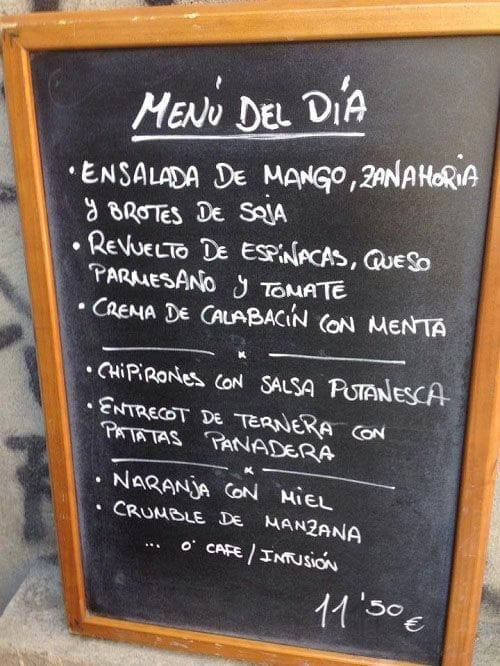 MENÚ DEL DÍA
• ENSALADA DE MANGO, ZANAHORIA
Y BROTES DE SOJA
• REVUELTO DE ESPINACAS, QUESO
PARMESANO Y TOMATE
• CREMA DE CALABACÍN CON MENTA
• CHIPIRONES CON SALSA PUTANESCA
• ENTRECOT DE TERNERA CON
PATATAS PANADERA
• NARANJA CON MIEL
• CRUMBLE DE MANZANA
... O CAFE/INFUSIÓN
11'50€